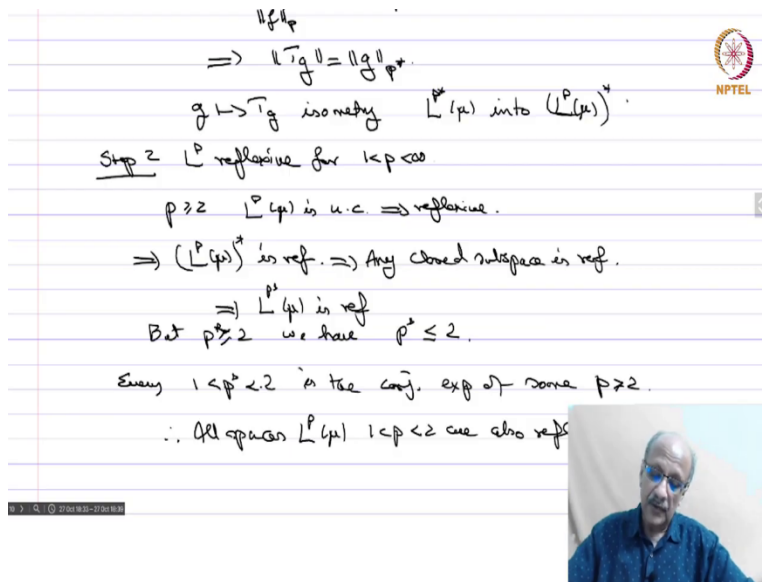 ‖f‖p
⟹ ‖Tg‖ = ‖g‖p*.
NPTEL
g ↦ Tg isometry L^p*(μ) into (L^p(μ))*.
Step 2 L^p reflexive for 1<p<∞
p≥2 L^p(μ) is u.c. ⟹ reflexive.
⟹ (L^p(μ))* is ref. ⟹ Any closed subspace is ref.
⟹ L^p*(μ) is ref
But p≥2 we have p* ≤ 2.
Every 1<p*<2 is the conj. exp of some p>2.
∴ All spaces L^p(μ) 1<p<2 are also
27 Oct 18:33 – 27 Oct 18:39